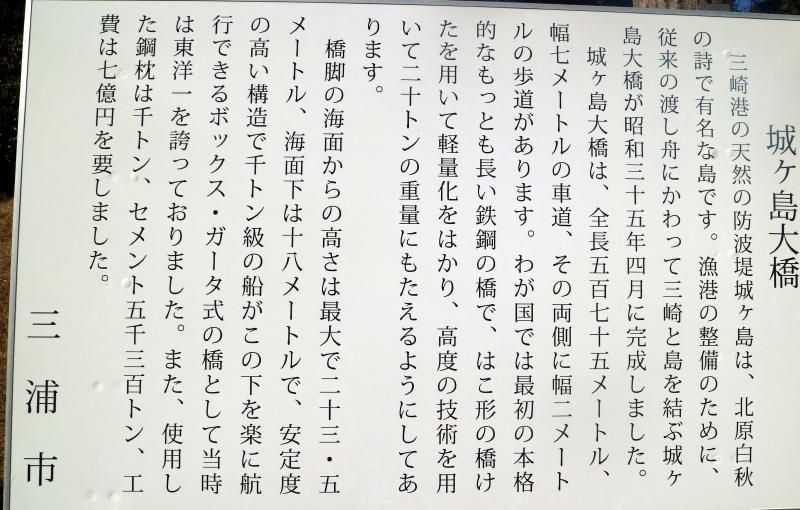 城ヶ島大橋
三崎港の天然の防波堤城ヶ島は、北原白秋
の詩で有名な島です。漁港の整備のために、
従来の渡し舟にかわって三崎と島を結ぶ城ヶ
島大橋が昭和三十五年四月に完成しました。
城ヶ島大橋は、全長五百七十五メートル、
幅七メートルの車道、その両側に幅二メート
ルの歩道があります。わが国では最初の本格
的なもっとも長い鉄鋼の橋で、はこ形の橋け
たを用いて軽量化をはかり、高度の技術を用
いて二十トンの重量にもたえるようにしてあ
ります。
橋脚の海面からの高さは最大で二十三・五
メートル、海面下は十八メートルで、安定度
の高い構造で千トン級の船がこの下を楽に航
行できるボックス・ガータ式の橋として当時
は東洋一を誇っておりました。また、使用し
た鋼枕は千トン、セメント五千三百トン、工
費は七億円を要しました。
三浦市